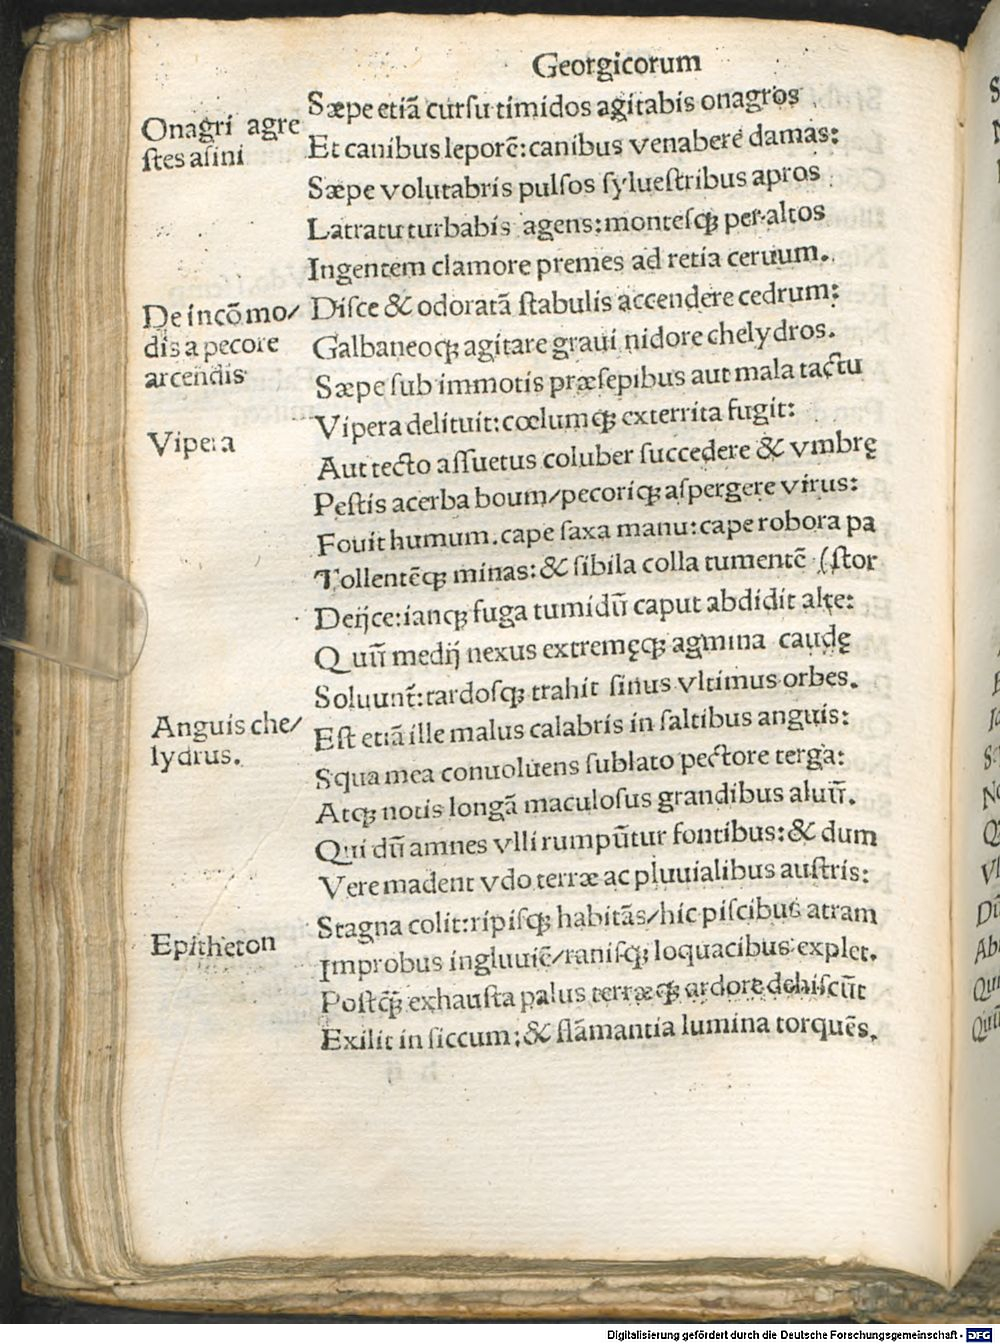 Georgicorum
Sæpe etiã curſu timidos agitabis onagros
Onagri agre
ſtes aſini
Et canibus leporẽ: canibus venabere damas:
Sæpe volutabris pulſos ſylueſtribus apros
Latratu turbabis agens: monteſqꝫ per altos
Ingentem clamore premes ad retia ceruum.
De incõmo/
dis a pecore
arcendis
Diſce & odoratã ſtabulis accendere cedrum:
Galbaneoqꝫ agitare graui nidore chelydros.
Sæpe ſub immotis præſepibus aut mala tactu
Vipera
Vipera delituit: cœlumqꝫ exterrita fugit:
Aut tecto aſſuetus coluber ſuccedere & vmbrę
Peſtis acerba boum/pecoriqꝫ aſpergere virus:
Fouit humum. cape ſaxa manu: cape robora pa
Tollentẽqꝫ minas: & ſibila colla tumentẽ (ſtor
Deijce: iamqꝫ fuga tumidũ caput abdidit alte:
Quũ medij nexus extremęqꝫ agmina caudę
Soluunt̃: tardoſqꝫ trahit ſinus vltimus orbes.
Anguis che/
lydrus.
Eſt etiã ille malus calabris in ſaltibus anguis:
Squamea conuoluens ſublato pectore terga:
Atqꝫ notis longã maculoſus grandibus aluũ.
Qui dũ amnes vlli rumpũtur fontibus: & dum
Vere madent vdo terræ ac pluuialibus auſtris:
Stagna colit: ripiſqꝫ habitãs/hic piſcibus atram
Epitheton
Improbus ingluuiẽ/raniſqꝫ loquacibus explet.
Poſtq̃ꝫ exhauſta palus terræqꝫ ardore dehiſcũt
Exilit in ſiccum; & flãmantia lumina torquẽs.
Digitalisierung gefördert durch die Deutsche Forschungsgemeinschaft - DFG